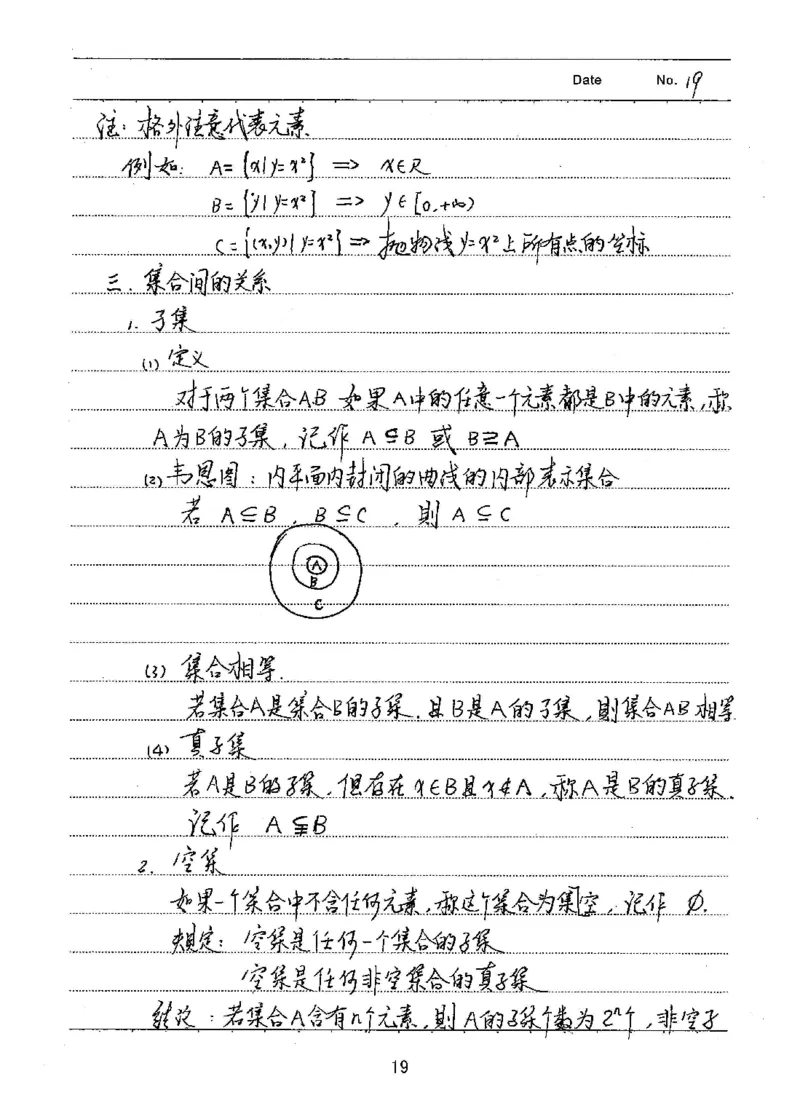 Date No. 19
注：格外注意代表元素
例如：A={x|y=x²} => x∈R
B={y|y=x²} => y∈[0,+∞)
C={(x,y)|y=x²} => 抛物线y=x²上所有点的坐标
三．集合间的关系
1. 子集
(1) 定义
对于两个集合AB 如果A中的任意一个元素都是B中的元素，称
A为B的子集，记作 A⊆B 或 B⊇A
(2) 韦恩图：内平面内封闭的曲线的内部表示集合
若 A⊆B，B⊆C，则 A⊆C
A
B
C
(3) 集合相等．
若集合A是集合B的子集，且B是A的子集，则集合AB相等
(4) 真子集
若A是B的子集，但存在x∈B且x∉A，称A是B的真子集．
记作 A⫋B
2. 空集
如果一个集合中不含任何元素，称这个集合为集空，记作 ∅．
规定：空集是任何一个集合的子集
空集是任何非空集合的真子集
结论：若集合A含有n个元素，则A的子集个数为2ⁿ个，非空子
19